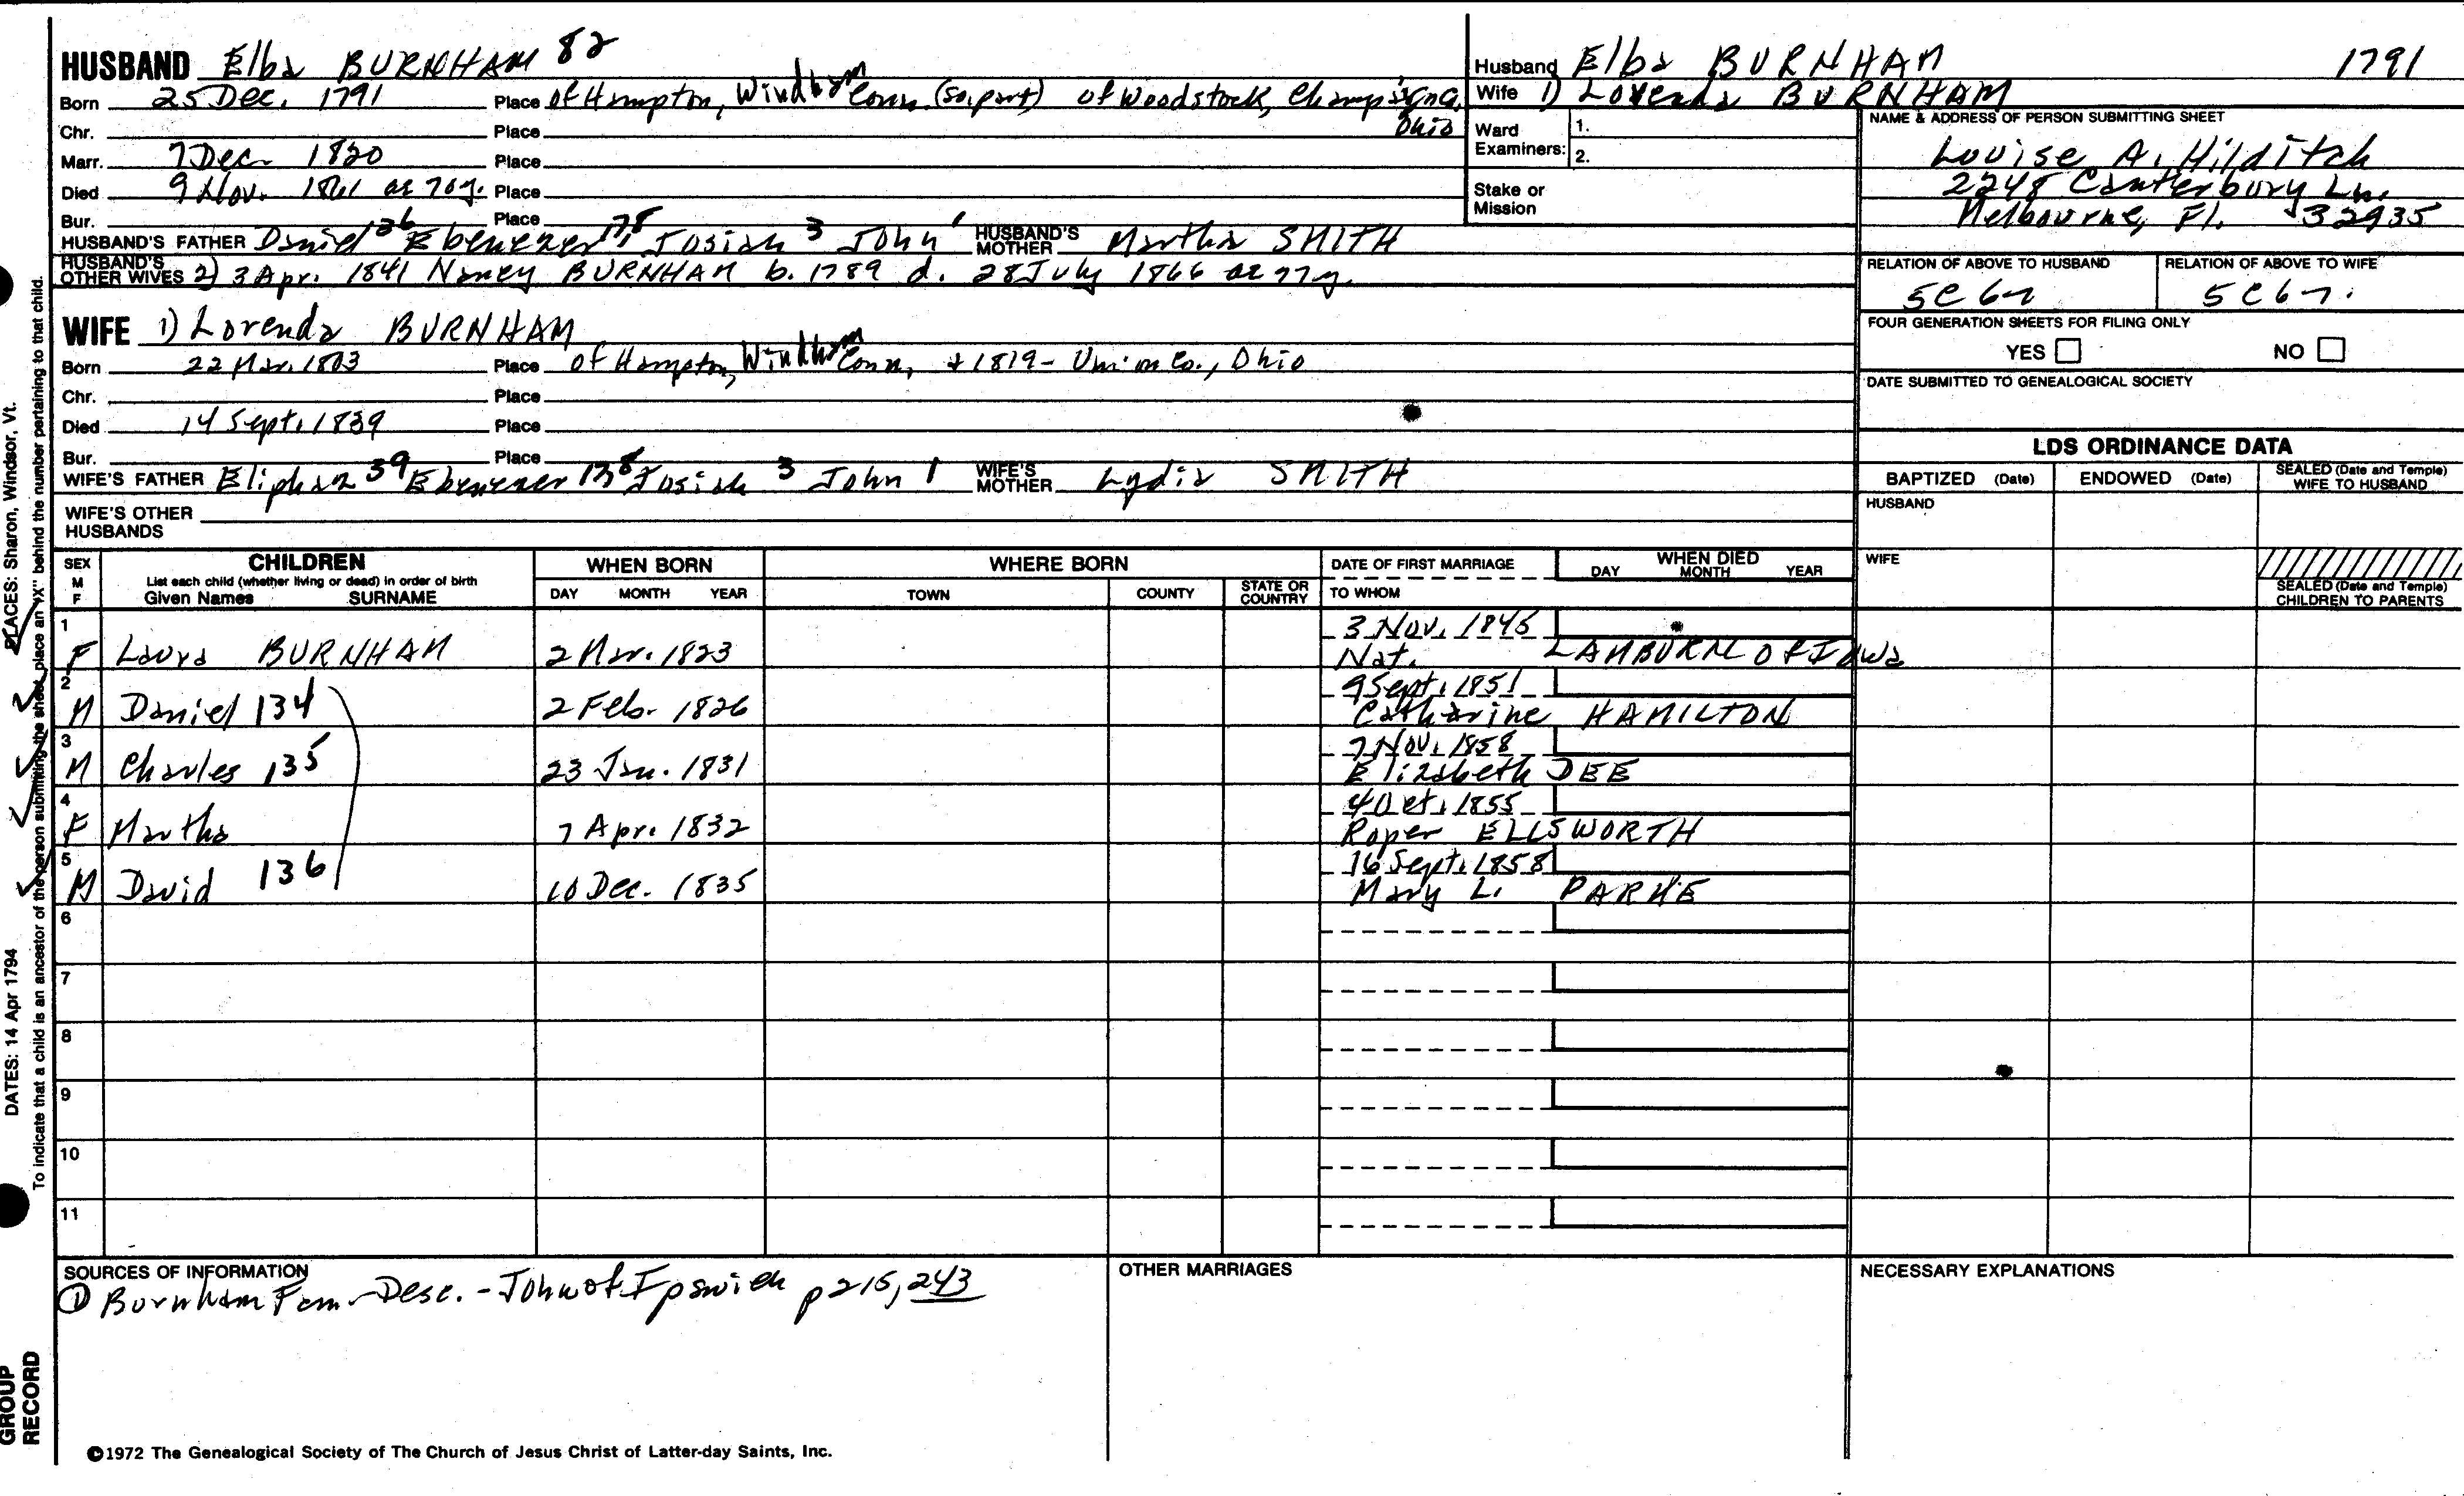 HUSBAND Elba BURNHAM 82
Born 25 Dec. 1791 Place of Hampton, Windham Conn. (So. part) of Woodstock, Champaign Co. Ohio
Chr. Place
Marr. 7 Dec. 1820 Place
Died 9 Nov. 1861 ae 70 y. Place
Bur. Place
HUSBAND'S FATHER Daniel 36 Ebenezer 178 Josiah 3 John 1 HUSBAND'S MOTHER Martha SMITH
HUSBAND'S OTHER WIVES 2) 3 Apr. 1841 Nancy BURNHAM b. 1789 d. 28 July 1866 ae 77 y.
WIFE 1) Lorenda BURNHAM
Born 22 Mar. 1803 Place of Hampton, Windham Conn, + 1819 - Union Co., Ohio
Chr. Place
Died 14 Sept. 1839 Place
Bur. Place
WIFE'S FATHER Eliphaz 39 Ebenezer 138 Josiah 3 John 1 WIFE'S MOTHER Lydia SMITH
WIFE'S OTHER HUSBANDS
Husband Elba BURNHAM 1791
Wife 1) Lorenda BURNHAM
Ward Examiners: 1.
2.
Stake or Mission
NAME & ADDRESS OF PERSON SUBMITTING SHEET
Louise A. Hilditch
2248 Canterbury Ln.
Melbourne, Fl. 32935
RELATION OF ABOVE TO HUSBAND RELATION OF ABOVE TO WIFE
5C 6r 5C 6r.
FOUR GENERATION SHEETS FOR FILING ONLY
YES NO
DATE SUBMITTED TO GENEALOGICAL SOCIETY
LDS ORDINANCE DATA
BAPTIZED (Date) ENDOWED (Date) SEALED (Date and Temple) WIFE TO HUSBAND
HUSBAND
WIFE
SEALED (Date and Temple) CHILDREN TO PARENTS
SEX M F
CHILDREN
List each child (whether living or dead) in order of birth
Given Names SURNAME
WHEN BORN
DAY MONTH YEAR
WHERE BORN
TOWN COUNTY STATE OR COUNTRY
DATE OF FIRST MARRIAGE
TO WHOM
WHEN DIED
DAY MONTH YEAR
1 F Laura BURNHAM 2 Mar. 1823 3 Nov. 1845
Nat. LAMBURN of Iowa
2 M Daniel 134 2 Feb. 1826 9 Sept. 1851
Catharine HAMILTON
3 M Charles 135 23 Jan. 1831 7 Nov. 1858
Elizabeth DEE
4 F Martha 7 Apr. 1832 4 Oct. 1855
Roper ELLSWORTH
5 M David 136 10 Dec. 1835 16 Sept. 1858
Mary L.
6
7
8
9
10
11
SOURCES OF INFORMATION
① Burnham Fam. - Desc. - John of Ipswich p 215, 243
OTHER MARRIAGES
NECESSARY EXPLANATIONS
©1972 The Genealogical Society of The Church of Jesus Christ of Latter-day Saints, Inc.
PLACES: Sharon, Windsor, Vt.
DATES: 14 Apr 1794
To indicate that a child is an ancestor of the person submitting the sheet, place an "X" behind the number pertaining to that child.
GROUP RECORD